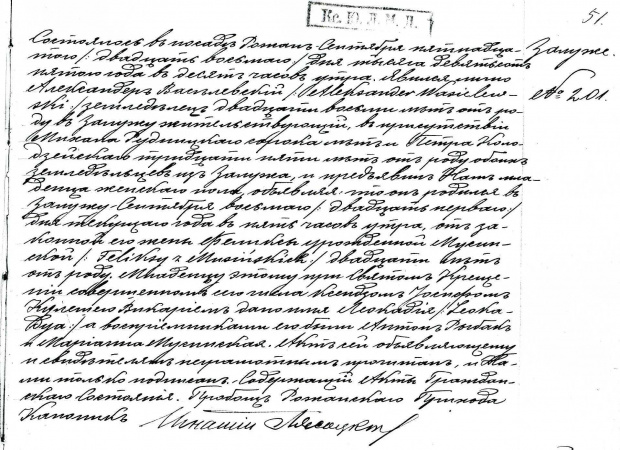 Кс. Ю. Л. М. Д.
51.
Состоялось въ посадѣ Рожан Сентября пятнадца-
того /: двадцать восьмаго :/ дня тысяча девятьсотъ
пятого года въ десять часовъ утра. Явился лично
Александеръ Василевскій /: Aleksander Wasilew-
ski :/ земледѣлец двадцати восьми лѣтъ отъ ро-
ду въ Залужу жительствующій, въ присутствіи
Михала Рудницкаго сорока лѣтъ и Петра Коло-
дзейскаго тридцати пяти лѣтъ отъ роду обоихъ
земледѣльцевъ изъ Залужа, и предъявилъ Намъ мла-
денца женскаго пола, объявляя что онъ родился въ
Залужу Сентября восьмаго /: двадцать перваго :/
дня текущаго года въ пять часовъ утра, отъ за-
конной его жены Феликсы урожденной Мусин-
ской /: Feliksy z Musińskich :/ двадцати лѣтъ
отъ роду. Младенцу этому при Святомъ Креще-
ніи совершенномъ его числа Ксендзомъ Іосифомъ
Викаріемъ дано имя Леокадія /: Leoka-
dya :/ а воспріемниками его были Антон Рыбакъ
и Маріанна Мусинская. Актъ сей объявляющему
и свидѣтелямъ неграмотнымъ прочитан, и На-
ми только подписан. Содержащій Акты Граждан-
скаго Состоянія. Пробощъ Рожанскаго Прихода
Каноникъ
Залуже.
№ 201.